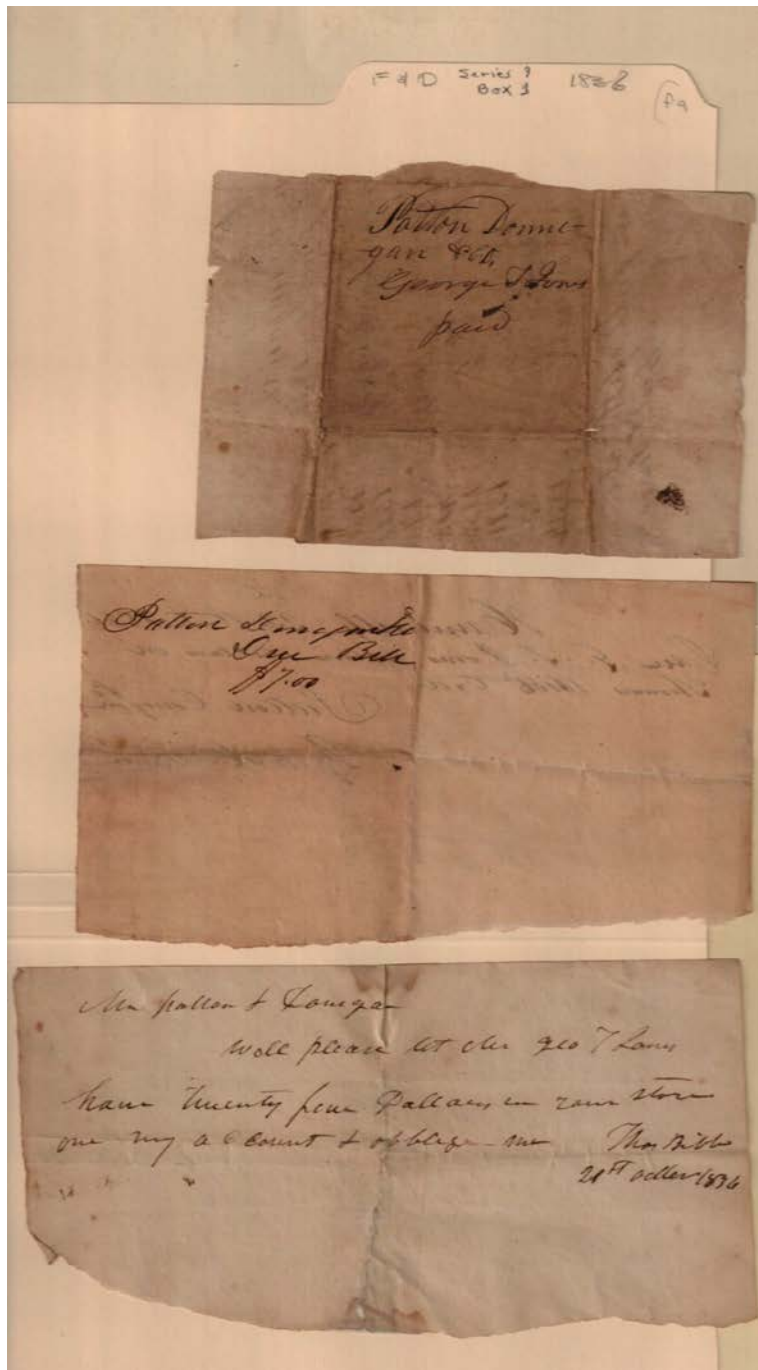 F & D Series 1 1836
Box 1
Patton Donne-
gan & Co.
George T Jones
paid
Patton Donegan & Co
Due Bill
$7.00
Mr patton & Donegan
Will please let Mr geo T Jones
have twenty five Dallars in your store
one my account & obblige me Thos Bibb
21st octber 1836